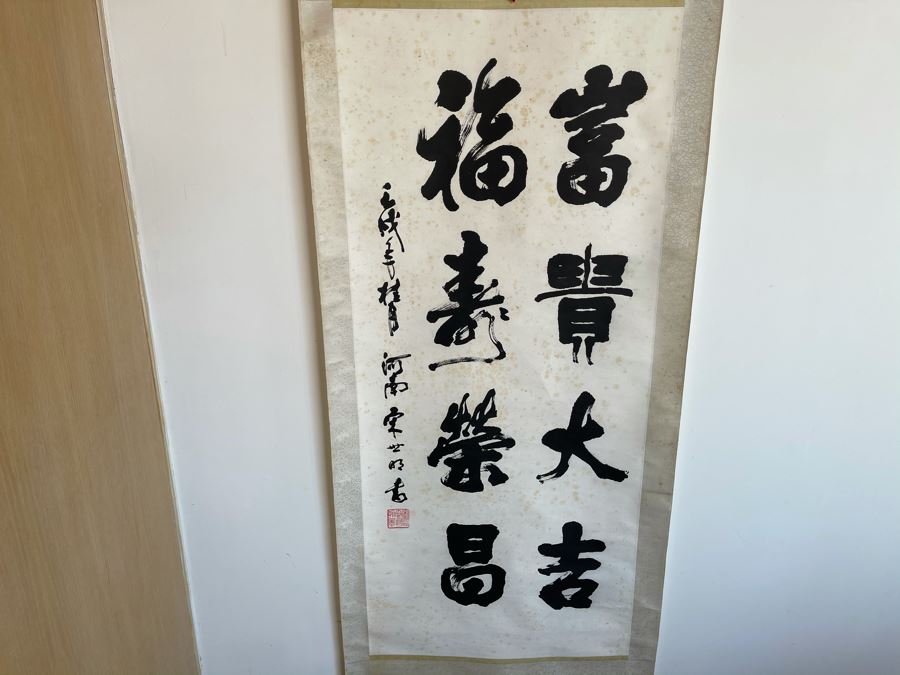 富貴大吉
福壽榮昌
壬戌年桂月 河南宋世明書